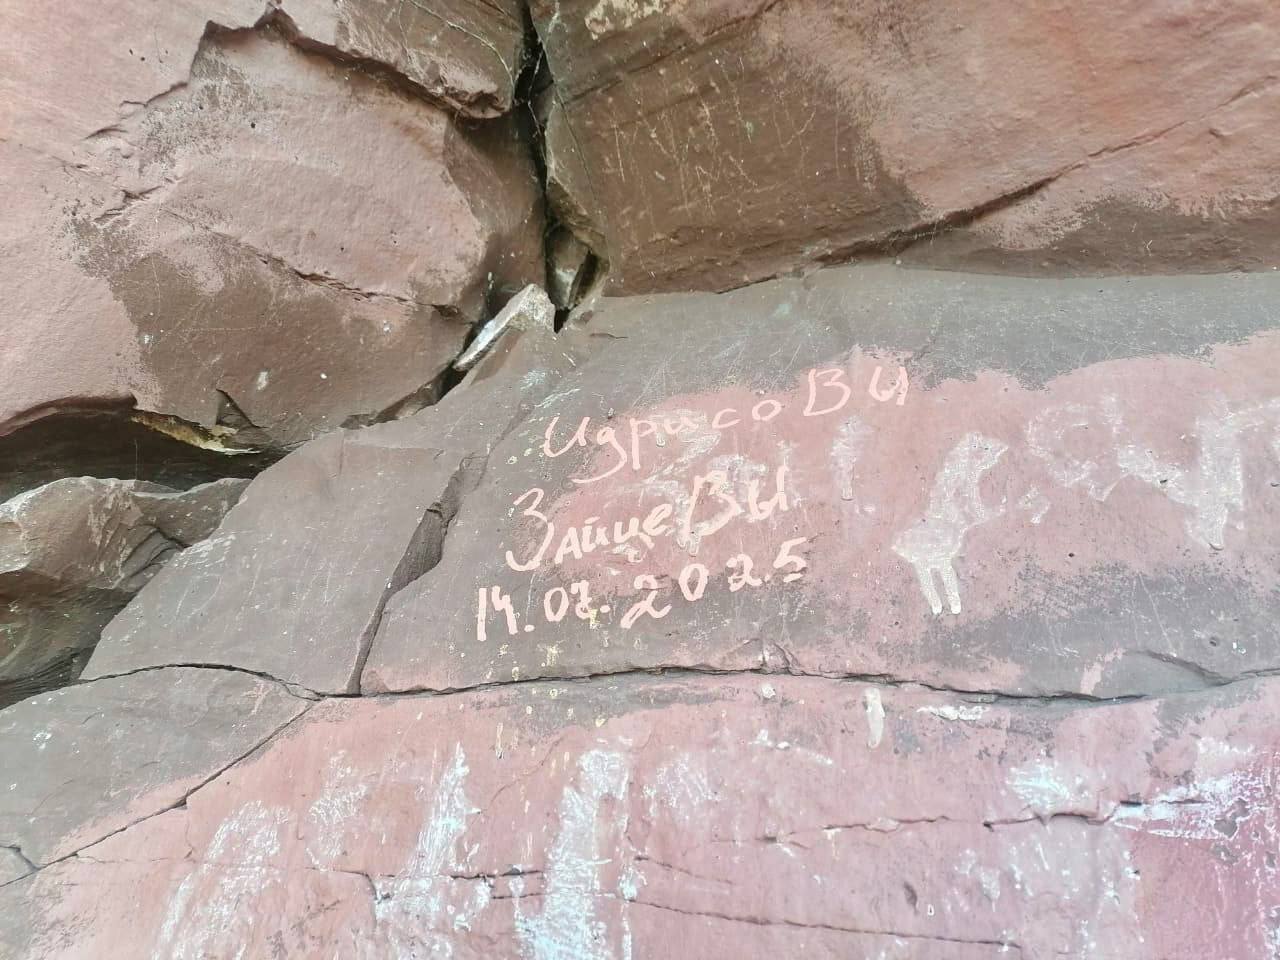 ИдрисоВы
ЗАйцеВы
14.07.2025